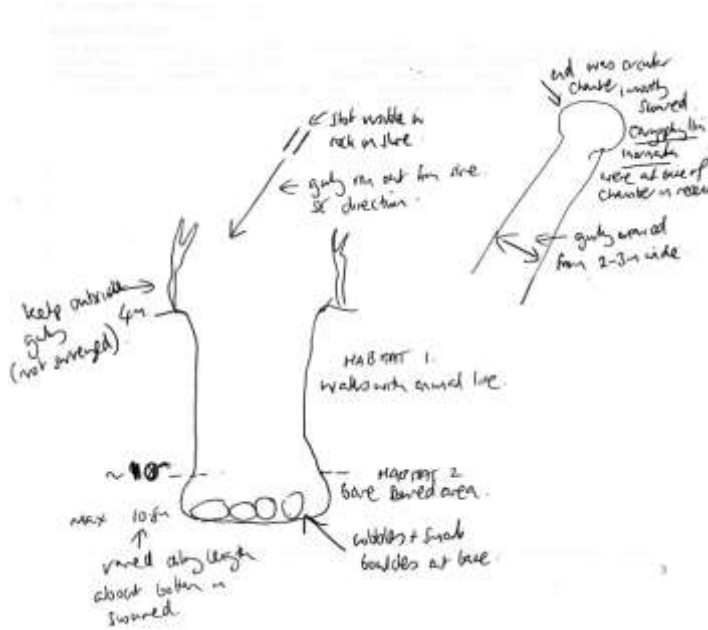 slot visible in
rock on shore.
gully ran out from shore
SE direction.
end was circular
chamber, mostly
scoured.
Caryophyllia
inornata
were at base of
chamber in
gully varied
from 2-3m wide
kelp outside
gully
(not surveyed).
4m
HABITAT 1.
walls with animal
HABITAT 2
bare scoured area.
max
varied along length
about bottom
scoured.
cobbles + small
boulders at base.